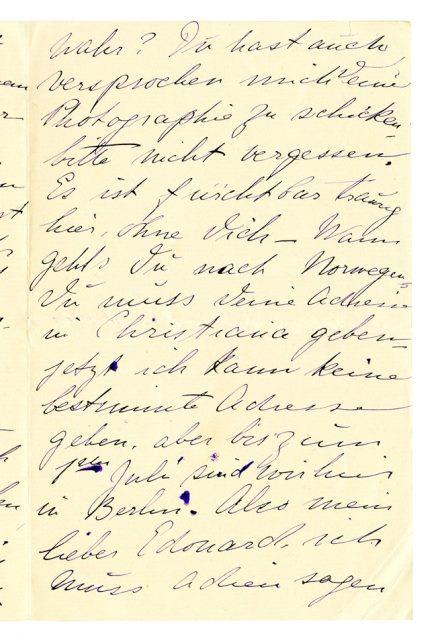 wahr? Du hast auch
versprochen mich Deine
Photographie zu schicken
bitte nicht vergessen.
Es ist furchtbar traurig
hier, ohne Dich – Wann
gehts Du nach Norwegen
Du muss Deine Adresse
in Christiana geben –
jetzt ich kann keine
bestimmte Adresse
geben, aber bis zum
1sten Juli sind wir hier
in Berlin. Also mein
lieber Edouard, ich
muss adieu sagen